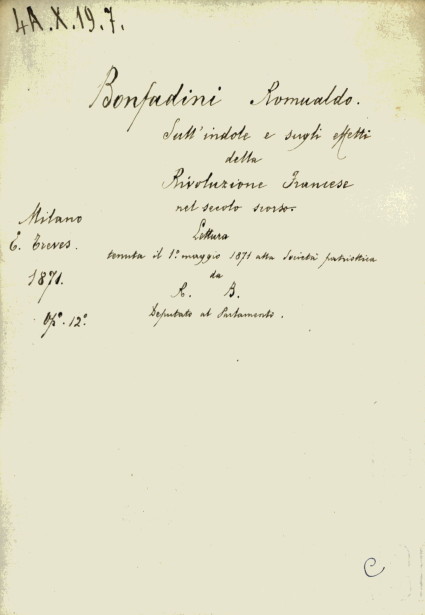 4A.X.19.7.
Bonfadini Romualdo.
Sull'indole e sugli effetti
della
Rivoluzione Francese
nel secolo scorso.
Milano
E. Treves.
1871.
op.° 12.°
Lettura
tenuta il 1.° maggio 1871 alla Società patriottica
da
R. B.
Deputato al Parlamento.
C